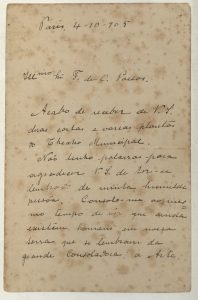 Paris, 4-10-905
Illmo Sr. F. de C. Passos.
Acabo de receber de V. S.
duas cartas e varias plantas
do Theatro Municipal.
Não tenho palavras para
agradecer V. S. de ter-se
lembrado de minha humilde
pessoa. Consola-me ao mes-
mo tempo de ver que ainda
existem homens em nossa
terra que se lembram da
grande Consoladora, a Arte.